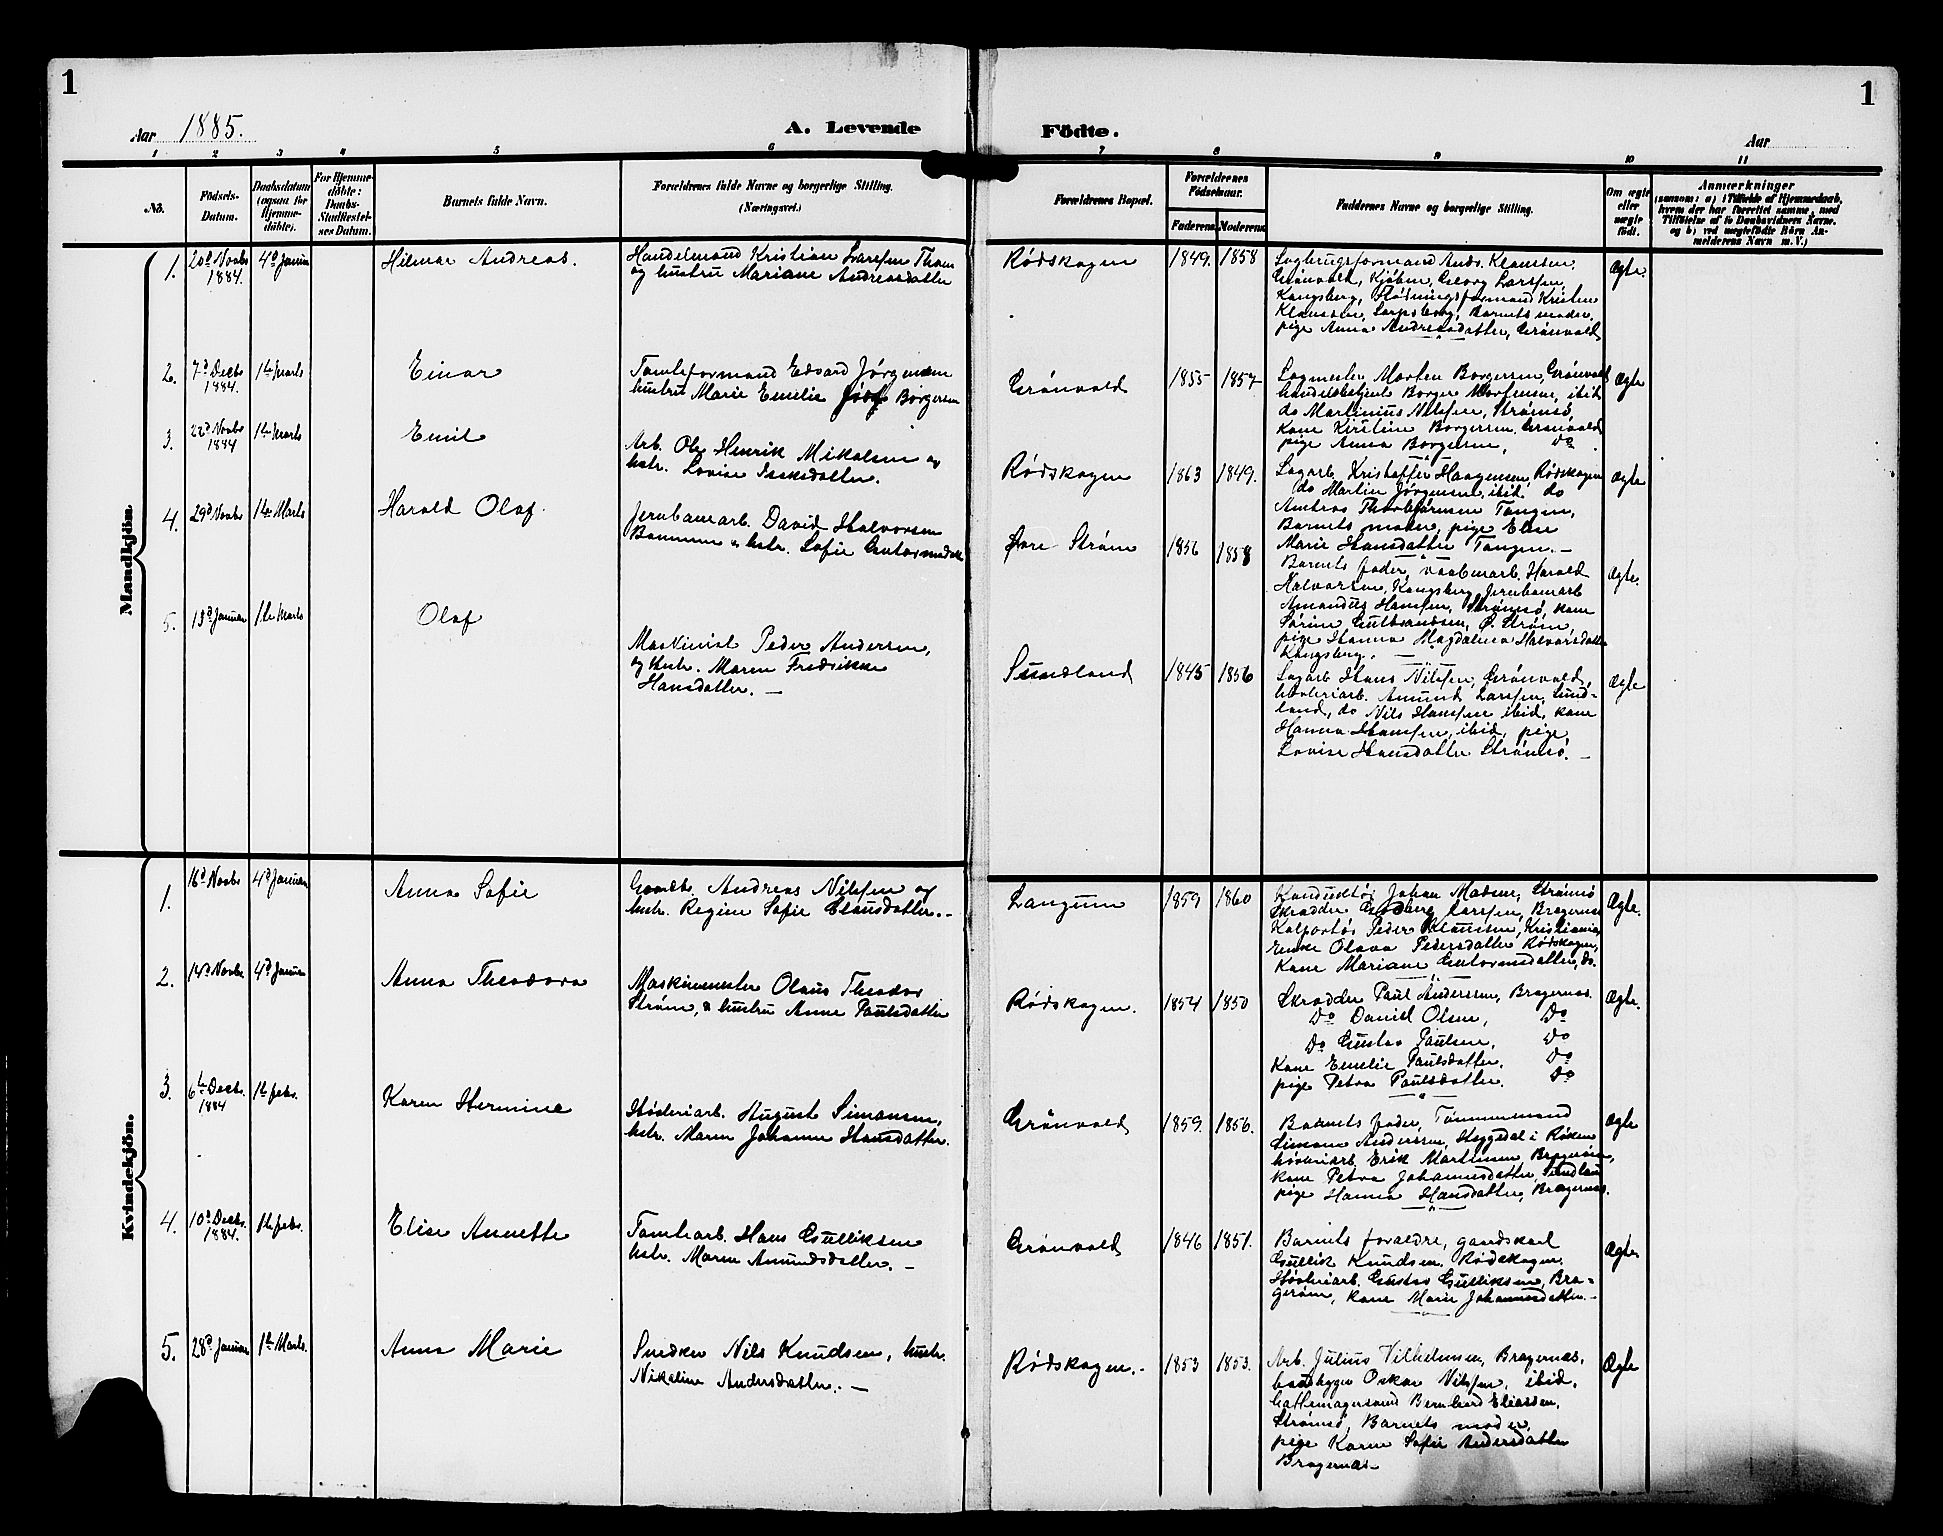 1
1
Aar 1885.
A. Levende
Födte.
Aar
1 2 3 4 5 6 7 8 9 10 11
No.
Födsels-
Datum.
Daabsdatum
(ogsaa for
Hjemme-
döbte).
For Hjemme-
döbte:
Daabs-
Stadfæstel-
ses Datum.
Barnets fulde Navn.
Forældrenes fulde Navne og borgerlige Stilling.
(Næringsvei.)
Forældrenes Bopæl.
Forældrenes
Födselsaar.
Faderens
Moderens
Faddernes Navne og borgerlige Stilling.
Om ægte
eller
uægte
födt.
Anmærkninger
(saasom: a) i Tilfælde af Hjemmedaab,
hvem der har forrettet samme, med
Tilföielse af to Daabsvidners Navne.
og b) ved uægtefödte Börn An-
melderens Navn m. V.)
Mandkjön.
1. 20d Novbr 1884. 4d Januar Hilmar Andreas.
Handelsmand Kristian Larssen Thom
og hustru Mariane Andreasdatter
Rødskogen 1849. 1858
Sagbrugsformand Ands. Klaussen,
Grønvold, Kjøbm. Georg Larssen,
Kongsberg, Flødningsformand Kristen
Klaussen, Sarpsborg, Barnets moder,
pige Anna Andreasdatter, Grønvold
Ægte.
2. 7d Decbr 1884. 1ste Marts Einar
Tomteformand Edvard Jørgensen
hustru Marie Emelie Borgersen
Grønvold 1855 1857
Sagmester Morten Borgersen, Grønvold
handelsbetjent Borger Mortensen, ibid
do Martinius Nilssen, Strømsø,
kone Kirstine Borgersen, Grønvold
pige Anna Borgersen, do
Ægte
3. 22d Novbr 1884 1ste Marts Emil
Arb. Ole Henrik Mikalsen og
hstr. Lovise Isaksdatter.
Rødskogen 1863 1849.
Sagarb. Kristoffer Haagensen, Rødskogen
do Martin Jørgensen, ibid. do
Andreas Thorbjørnsen Tangen,
Barnets moder, pige Elise
Marie Hansdatter Tangen.—
Ægte
4. 29d Novbr 1ste Marts Harald Olaf.
Jernbanearb. David Halvorsen
& hstr. Sofie Guttormsdatt
Øvre Strøm 1856 1858
Barnets fader, vaabenarb. Harald
Halvorsen, Kongsberg, Jernbanearb
Amandus Hansen, Strømsø, kone
Sørine Gulbrandsen, Ø. Strøm,
pige Hanna Magdalena Halvorsdatter
Kongsberg. —
Ægte.
5. 13d Januar 1ste Marts Olaf
Maskinist Peder Andersen,
og hstr. Maren Fredrikke
Hansdatter. —
Sundland 1845 1856
Sagarb Hans Nilssen, Grønvold,
høvleriarb. Amund Larssen, Sund-
land, do Nils Hanssen ibid, kone
Hanna Hanssen, ibid, pige,
Lovise Hansdatter Strømsø. —
Ægte
Kvindekjön.
1. 16d Novbr 4d Januar Anna Sofie
Gaardbr. Andreas Nilssen og
hstr. Regine Sofie Clausdatter.—
Langum 1859 1860
Konduktør Johan Madsen, Strømsø
Skrædder Larssen, Bragernes
Kolportør Peder Klaussen, Kristiania,
Enke Olava Pedersdatter Rødskogen,
Kone Mariane Guttormsdatter, do.
Ægte.
2. 14d Novbr 4d Januar Anna Theodora
Maskinmester Olaus Theodor
Strøm, & hustru Anne Paulsdatter
Rødskogen. 1854 1850
Skrædder Paul Anderssen, Bragernes.
Do Daniel Olsen, Do
Do Gustav Paulsen, Do
Kone Emelie Paulsdatter. Do
pige Petra Paulsdatter. Do
Ægte.
3. 6te Decbr. 1884 1ste febr. Karen Hermine
Høvleriarb. August Simonsen,
hstr. Maren Johanne Hansdatter.
Grønvold 1859. 1856.
Barnets fader, Tømmermand
Simon Anderssen, Heggedal i Røken
høvleriarb. Erik Martinsen Bragerøen,
kone Petra Johannesdatter, Sundland
pige Hanna Hansdatter, Bragernes.
Ægte
4. 10d Decbr. 1884. 1ste febr. Elise Annette
Tomtearb. Hans Gulliksen
hstr. Maren Amundsdatter. —
Grønvold 1846 1851.
Barnets forældre, gaardskarl
Gullik Knudsen. Rødskogen.
Høvleriarb. Gustav Gulliksen, Bra-
gerøen, kone Marie Johannesdatter.—
Ægte
5. 28d Januar 1ste Marts. Anna Marie
Snedker Nils Knudsen, hustr.
Nikoline Andersdatter. —
Rødskogen.- 1853 1853.
Arb. Julius Vilhelmsen, Bragernes,
baadbygger Oskar Nilssen, ibid.
hattemagersvend Bernhard Eliassen,
Strømsø, Barnets moder,
pige Karen Sofie Andersdatter
Bragernes—
Ægte